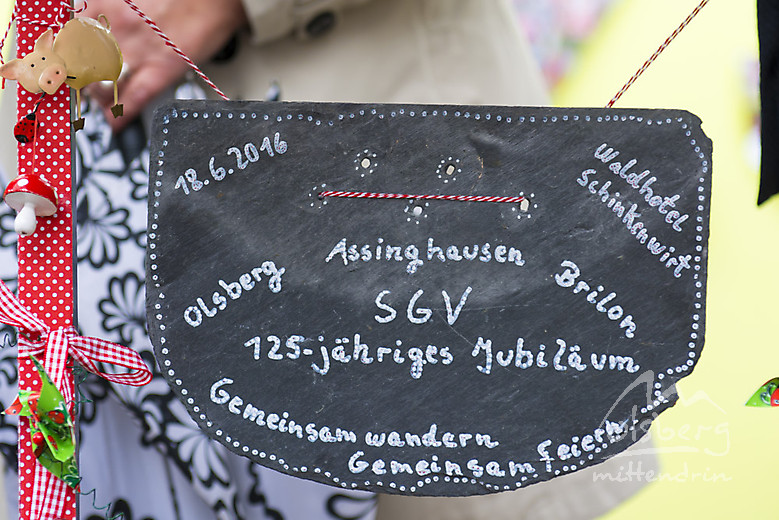 18.6.2016
Waldhotel
Schinkenwirt
Assinghausen
Olsberg
Brilon
SGV
125-jähriges Jubiläum
Gemeinsam wandern
Gemeinsam feiern
olsberg
mittendrin